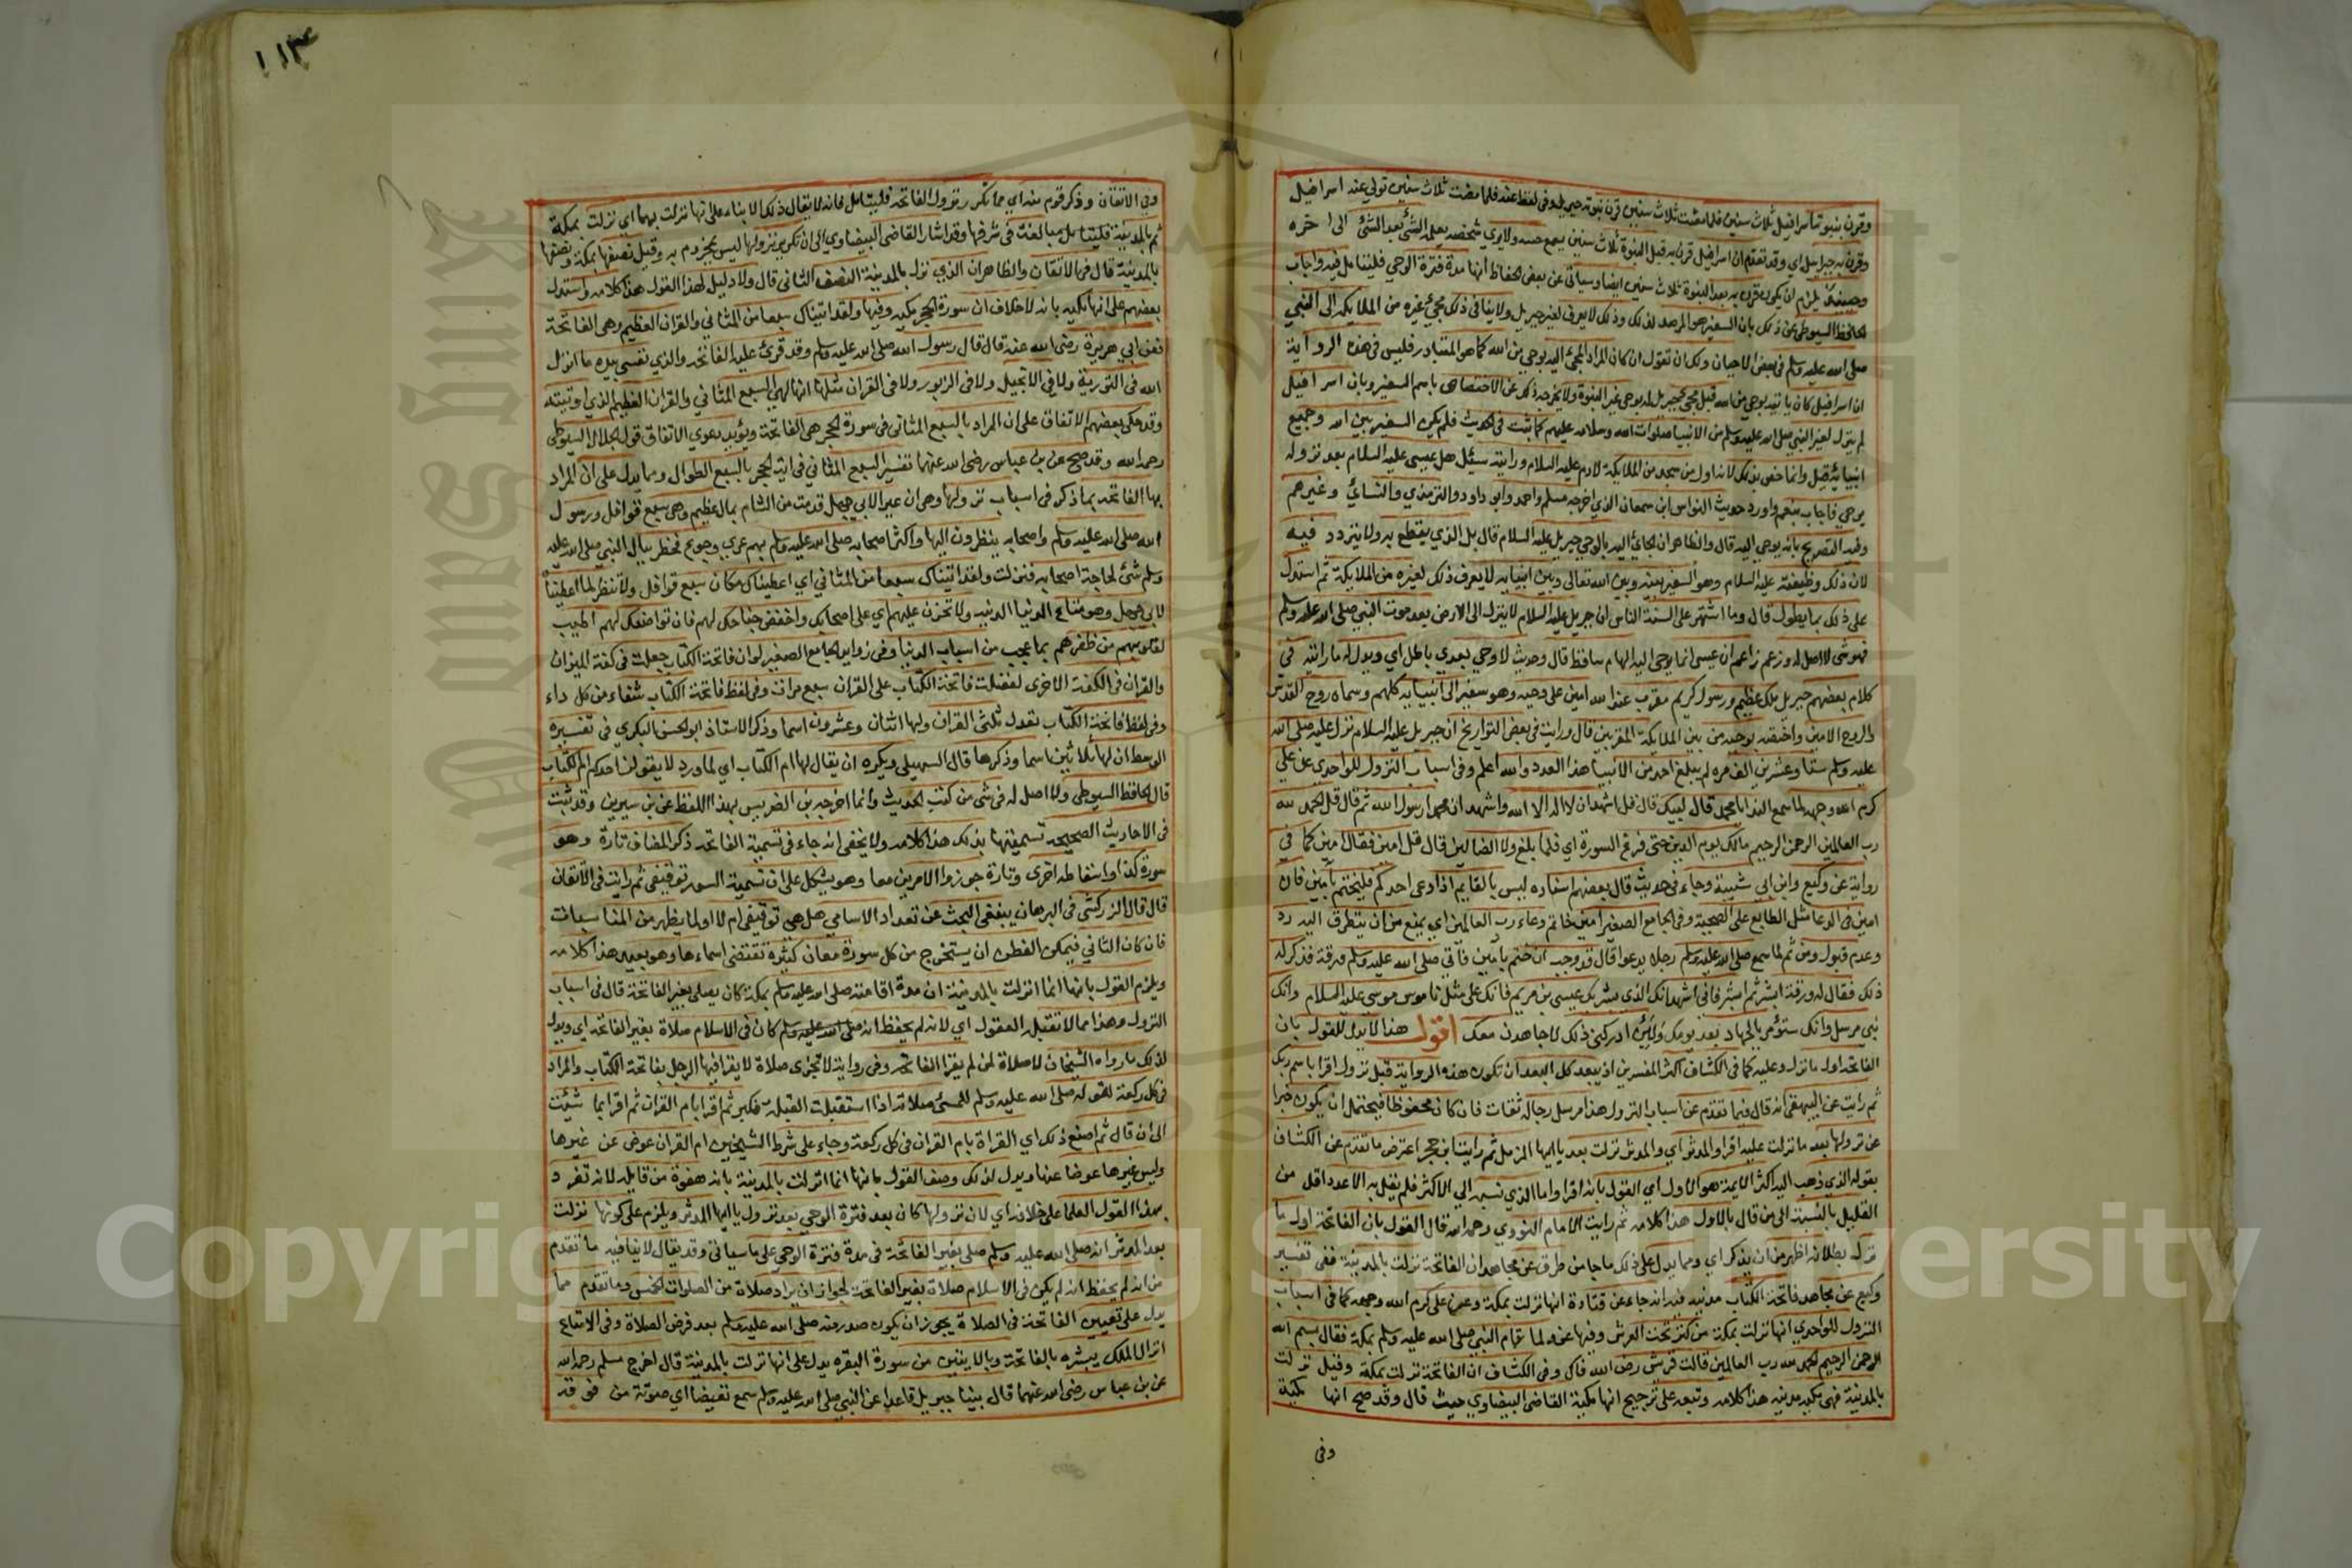 وقرن بنبوته اسرافيل ثلاث سنين فلما مضت ثلاث سنين قرن بنبوته جبريل وفي لفظ عنه فلما مضت ثلاث سنين تولي عنه اسرافيل
وقرن به جبرائيل اي وقد تقدم ان اسرافيل قرن به قبل النبوة ثلاث سنين يسمع حسه ولا يري شخصه يعلمه الشئ بعد الشئ الي اخره
وحينئذ يلزم ان يكون قرن به بعد النبوة ثلاث سنين ايضا وسياتي عن بعض الحفاظ انها مدة فترة الوحي فليتامل فيه واجاب
الحافظ السيوطي عن ذلك بان السفير هو المرصد لذلك وذلك لا يعرف لغير جبريل ولا ينافي ذلك مجئ غيره من الملايكة الي النبي
صلي الله عليه وسلم في بعض الاحيان ولك ان تقول ان كان المراد المجئ اليه بوحي من الله كما هو المتبادر فليس في هذه الرواية
ان اسرافيل كان ياتيه بوحي من الله قبل مجئ جبريل له بوحي غير النبوة ولا يخرجه ذلك عن الاختصاص باسم السفير وبان اسرافيل
لم ينزل لغير النبي صلي الله عليه وسلم من الانبيا صلوات الله وسلامه عليهم كما ثبت في الحديث فلم يكن السفير بين الله وجميع
انبيائه قيل وانما خص بذلك لانه اول من سجد من الملايكة لادم عليه السلام ورايته سئل هل عيسي عليه السلام بعد نزوله
يوحي فاجاب بنعم واورد حديث النواس ابن سمعان الذي اخرجه مسلم واحمد وابو داود والترمذي والنسائي وغيرهم
وفيه التصريح بانه يوحي اليه قال والظاهر ان الجائي اليه بالوحي جبريل عليه السلام قال بل الذي يقطع به ولا يتردد فيه
لان ذلك وظيفته عليه السلام وهو السفير بينه وبين الله تعالي وبين انبيايه لا يعرف ذلك لغيره من الملايكة ثم استدل
علي ذلك بما يطول قال وما اشتهر علي السنة الناس ان جبريل عليه السلام لا ينزل الي الارض بعد موت النبي صلي الله عليه وسلم
فهو شي لا اصل له وزعم زاعم ان عيسي انما يوحي اليه الهام ساقط قال وحديث لا وحي بعدي باطل اي ويدل له ما رايته في
كلام بعضهم جبريل ملك عظيم ورسول كريم مقرب عند الله امين علي وحيه وهو سفير الي انبيايه كلهم وسماه روح القدس
والروح الامين واختصه بوحيه من بين الملايكة المقربين قال ورايت في بعض التواريخ ان جبريل عليه السلام نزل عليه صلي الله
عليه وسلم ستا وعشرين الف مرة لم يبلغ احد من الانبيا هذا العدد والله اعلم وفي اسباب النزول للواحدي عن علي
كرم الله وجهه لما سمع الندا يا محمد قال لبيك قال قل اشهد ان لا اله الا الله واشهد ان محمدا رسول الله ثم قال قل الحمد لله
رب العالمين الرحمن الرحيم مالك يوم الدين حتي فرغ السورة اي فلما بلغ ولا الضالين قال قل امين فقال امين كما في
رواية عن وكيع وابن ابي شيبة وجاء في حديث قال بعضهم اسناده ليس بالقايم اذا دعي احدكم فليختم بآمين فان
امين في الدعا مثل الطابع علي الصحيفة وفي الجامع الصغير امين خاتم دعاء رب العالمين اي يمنع من ان يتطرق اليه رد
وعدم قبول ومن ثم لما سمع صلي الله عليه وسلم رجلا يدعوا قال قد وجب ان ختم بآمين فاتي صلي الله عليه وسلم ورقة فذكر له
ذلك فقال له ورقة ابشر ثم ابشر فاني اشهد انك الذي بشر بك عيسي بن مريم فانك علي مثل ناموس موسي عليه السلام وانك
نبي مرسل وانك ستؤمر بالجهاد بعد يومك ولئن ادركني ذلك لاجاهدن معك اقول هذا لا يدل للقول بان
الفاتحة اول ما نزل وعليه كما في الكشاف اكثر المفسرين اذ يبعد كل البعد ان تكون هذه الرواية قبل نزول اقرا باسم ربك
ثم رايت عن البيهقي انه قال فيما تقدم عن اسباب النزول هذا مرسل رجاله ثقات فان كان محفوظا فيحتمل ان يكون خبرا
عن نزولها بعد ما نزلت عليه اقرا والمدثر اي والمدثر نزلت بعد يا ايها المزمل ثم رايت ابن حجر اعترض ما تقدم عن الكشاف
بقوله الذي ذهب اليه اكثر الايمة هو الاول اي القول بانه اقرا واما الذي نسبه الي الاكثر فلم يقل به الا عدد اقل من
القليل بالنسبة الي من قال بالاول هذا كلامه ثم رايت الامام النووي رحمه الله قال القول بان الفاتحة اول ما
نزل بطلانه اظهر من ان يذكر اي ومما يدل علي ذلك ما جا من طرق عن مجاهد ان الفاتحة نزلت بالمدينة ففي تفسير
وكيع عن مجاهد فاتحة الكتاب مدنية فيه انه جاء عن قتادة انها نزلت بمكة وعن علي كرم الله وجهه كما في اسباب
النزول للواحدي انها نزلت بمكة من كنز تحت العرش وفيها عنه ولما قام النبي صلي الله عليه وسلم بمكة فقال بسم الله
الرحمن الرحيم الحمد لله رب العالمين قالت قريش رض الله فاك وفي الكشاف ان الفاتحة نزلت بمكة وقيل نزلت
بالمدينة فهي مكية مدنية هذا كلامه وتبعه علي ترجيح انها مكية القاضي البيضاوي حيث قال وقد صح انها مكية
وفي
١١٣
وفي الاتقان وذكر قوم منه اي مما تكرر نزوله الفاتحة فليتامل فانه لا يقال ذلك الا بناء علي انها نزلت بهما اي نزلت بمكة
ثم بالمدينة فليتامل مبالغة في شرفها وقد اشار القاضي البيضاوي الي ان تكرير نزولها ليس بمجزوم به وقيل نصفها بمكة ونصفها
بالمدينة قال في الاتقان والظاهر ان الذي نزل بالمدينة النصف الثاني قال ولا دليل لهذا القول هذا كلامه واستدل
بعضهم علي انها مكية بانه لا خلاف ان سورة الحجر مكية وفيها ولقد اتيناك سبعا من المثاني والقران العظيم وهي الفاتحة
فعن ابي هريرة رضي الله عنه قال قال رسول الله صلي الله عليه وسلم وقد قرئ عليه الفاتحة والذي نفسي بيده ما انزل
الله في التورية ولا في الانجيل ولا في الزبور ولا في القران مثلها انها لهي السبع المثاني والقران العظيم الذي اوتيته
وقد حكي بعضهم الاتفاق علي ان المراد بالسبع المثاني في سورة الحجر هي الفاتحة ويؤيد دعوي الاتفاق قول الجلال السيوطي
رحمه الله وقد صح عن بن عباس رضي الله عنهما تفسير السبع المثاني في اية الحجر بالسبع الطوال ومما يدل علي ان المراد
بها الفاتحة بما ذكر في اسباب نزولها وهي ان عيرا لابي جهل قدمت من الشام بمال عظيم وهي سبع قوافل ورسول
الله صلي الله عليه وسلم واصحابه ينظرون اليها واكثر اصحابه صلي الله عليه وسلم بهم عري وجوع فخطر ببال النبي صلي الله عليه
وسلم شئ لحاجة اصحابه فنزلت ولقد اتيناك سبعا من المثاني اي اعطيناك مكان سبع قوافل ولا تنظر لما اعطيناه
لابي جهل وهو متاع الدنيا الدنية ولا تحزن عليهم اي علي اصحابك واخفض جناحك لهم فان تواضعك لهم اطيب
لقلوبهم من ظفرهم بما يحب من اسباب الدنيا وفي زوايد الجامع الصغير لو ان فاتحة الكتاب جعلت في كفة الميزان
والقران في الكفة الاخري لفضلت فاتحة الكتاب علي القران سبع مرات وفي لفظ فاتحة الكتاب شفاء من كل داء
وفي لفظ فاتحة الكتاب تعدل ثلثي القران ولها اثنان وعشرون اسما وذكر الاستاذ ابو الحسن البكري في تفسيره
الوسط ان لها ثلاثين اسما وذكرها قال السهيلي ويكره ان يقال لها ام الكتاب اي لما ورد لا يقولن احدكم ام الكتاب
قال الحافظ السيوطي ولا اصل له في شي من كتب الحديث وانما اخرجه بن الضريس بهذا اللفظ عن بن سيرين وقد ثبت
في الاحاديث الصحيحة تسميتها بذلك هذا كلامه ولا يخفي انه جاء في تسمية الفاتحة ذكر المضاف تارة وهو
سورة كذا واسقاطه اخري وتارة جوزوا الامرين معا وهو يشكل علي ان تسمية السور توقيفي ثم رايت في الاتقان
قال قال الزركشي في البرهان ينبغي البحث عن تعداد الاسامي هل هي توقيفي ام لا او لما يظهر من المناسبات
فان كان الثاني فيمكن الفطن ان يستخرج من كل سورة معان كثيرة تقتضي اسماءها وهو بعيد هذا كلامه
ويلزم القول بانها انما انزلت بالمدينة ان مدة اقامته صلي الله عليه وسلم بمكة كان يصلي بغير الفاتحة قال في اسباب
النزول وهذا مما لا تقبله العقول اي لانه لم يحفظ انه صلي الله عليه وسلم كان في الاسلام صلاة بغير الفاتحة اي ويدل
لذلك ما رواه الشيخان لا صلاة لمن لم يقرا الفاتحة وفي رواية لا تجزي صلاة لا يقرا فيها الرجل بفاتحة الكتاب والمراد
في كل ركعة لقوله صلي الله عليه وسلم للمسئ صلاته اذا استقبلت القبلة فكبر ثم اقرا بام القران ثم اقرا بما شئت
الي ان قال ثم اصنع ذلك اي القراة بام القران في كل ركعة وجاء علي شرط الشيخين ام القران عوض عن غيرها
وليس غيرها عوضا عنها ويدل لذلك وصف القول بانها انما انزلت بالمدينة بانه هفوة من قايله لانه تفرد
بهذا القول العلما علي خلافه اي لان نزولها كان بعد فترة الوحي بعد نزول يا ايها المدثر ويلزم علي كونها نزلت
بعد المدثر انه صلي الله عليه وسلم صلي بغير الفاتحة في مدة فترة الوحي علي ما سياتي وقد يقال لا ينافيه ما تقدم
من انه لم يحفظ انه لم يكن في الاسلام صلاة بغير الفاتحة لجواز ان يراد صلاة من الصلوات الخمس وما تقدم مما
يدل علي تعيين الفاتحة في الصلاة يجوز ان يكون صدر منه صلي الله عليه وسلم بعد فرض الصلاة وفي الامتاع
انزال الملك يبشره بالفاتحة وبالايتين من سورة البقرة يدل علي انها نزلت بالمدينة قال اخرج مسلم رحمه الله
عن بن عباس رضي الله عنهما قال بينا جبريل قاعدا عن النبي صلي الله عليه وسلم سمع نقيضا اي صوتة من فوقه
Copyright © King Saud University